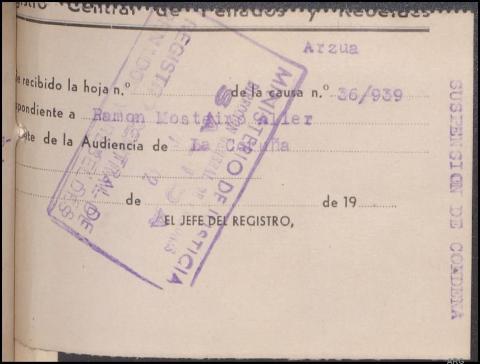 Central de Penados y Rebeldes
Arzua
recibido la hoja n.º de la causa n.º 36/939
pondiente a Ramon Mosteiro
te de la Audiencia de La Coruña
de de 19
EL JEFE DEL REGISTRO,
MINISTERIO DE JUSTICIA
SUSPENSION DE CONDENA
ARG